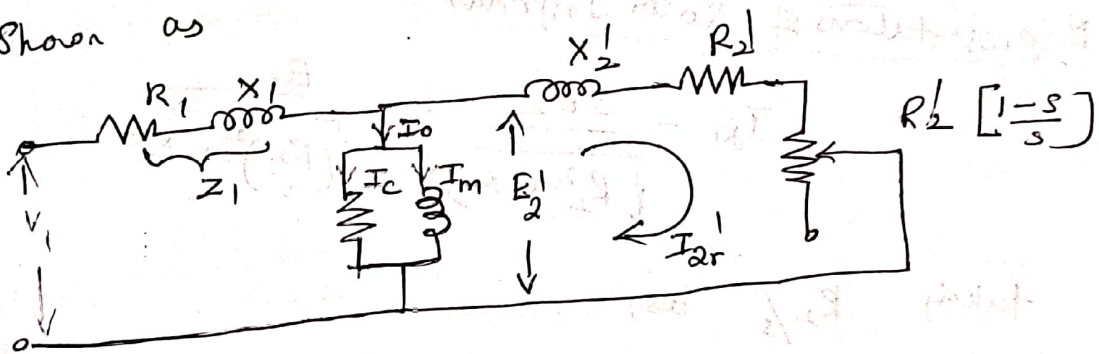 Shown as
R₁ X₁
Z₁
V₁
I₀
I_c I_m
E₂'
X₂' R₂'
I₂ᵣ'
R₂' [1-s/s]